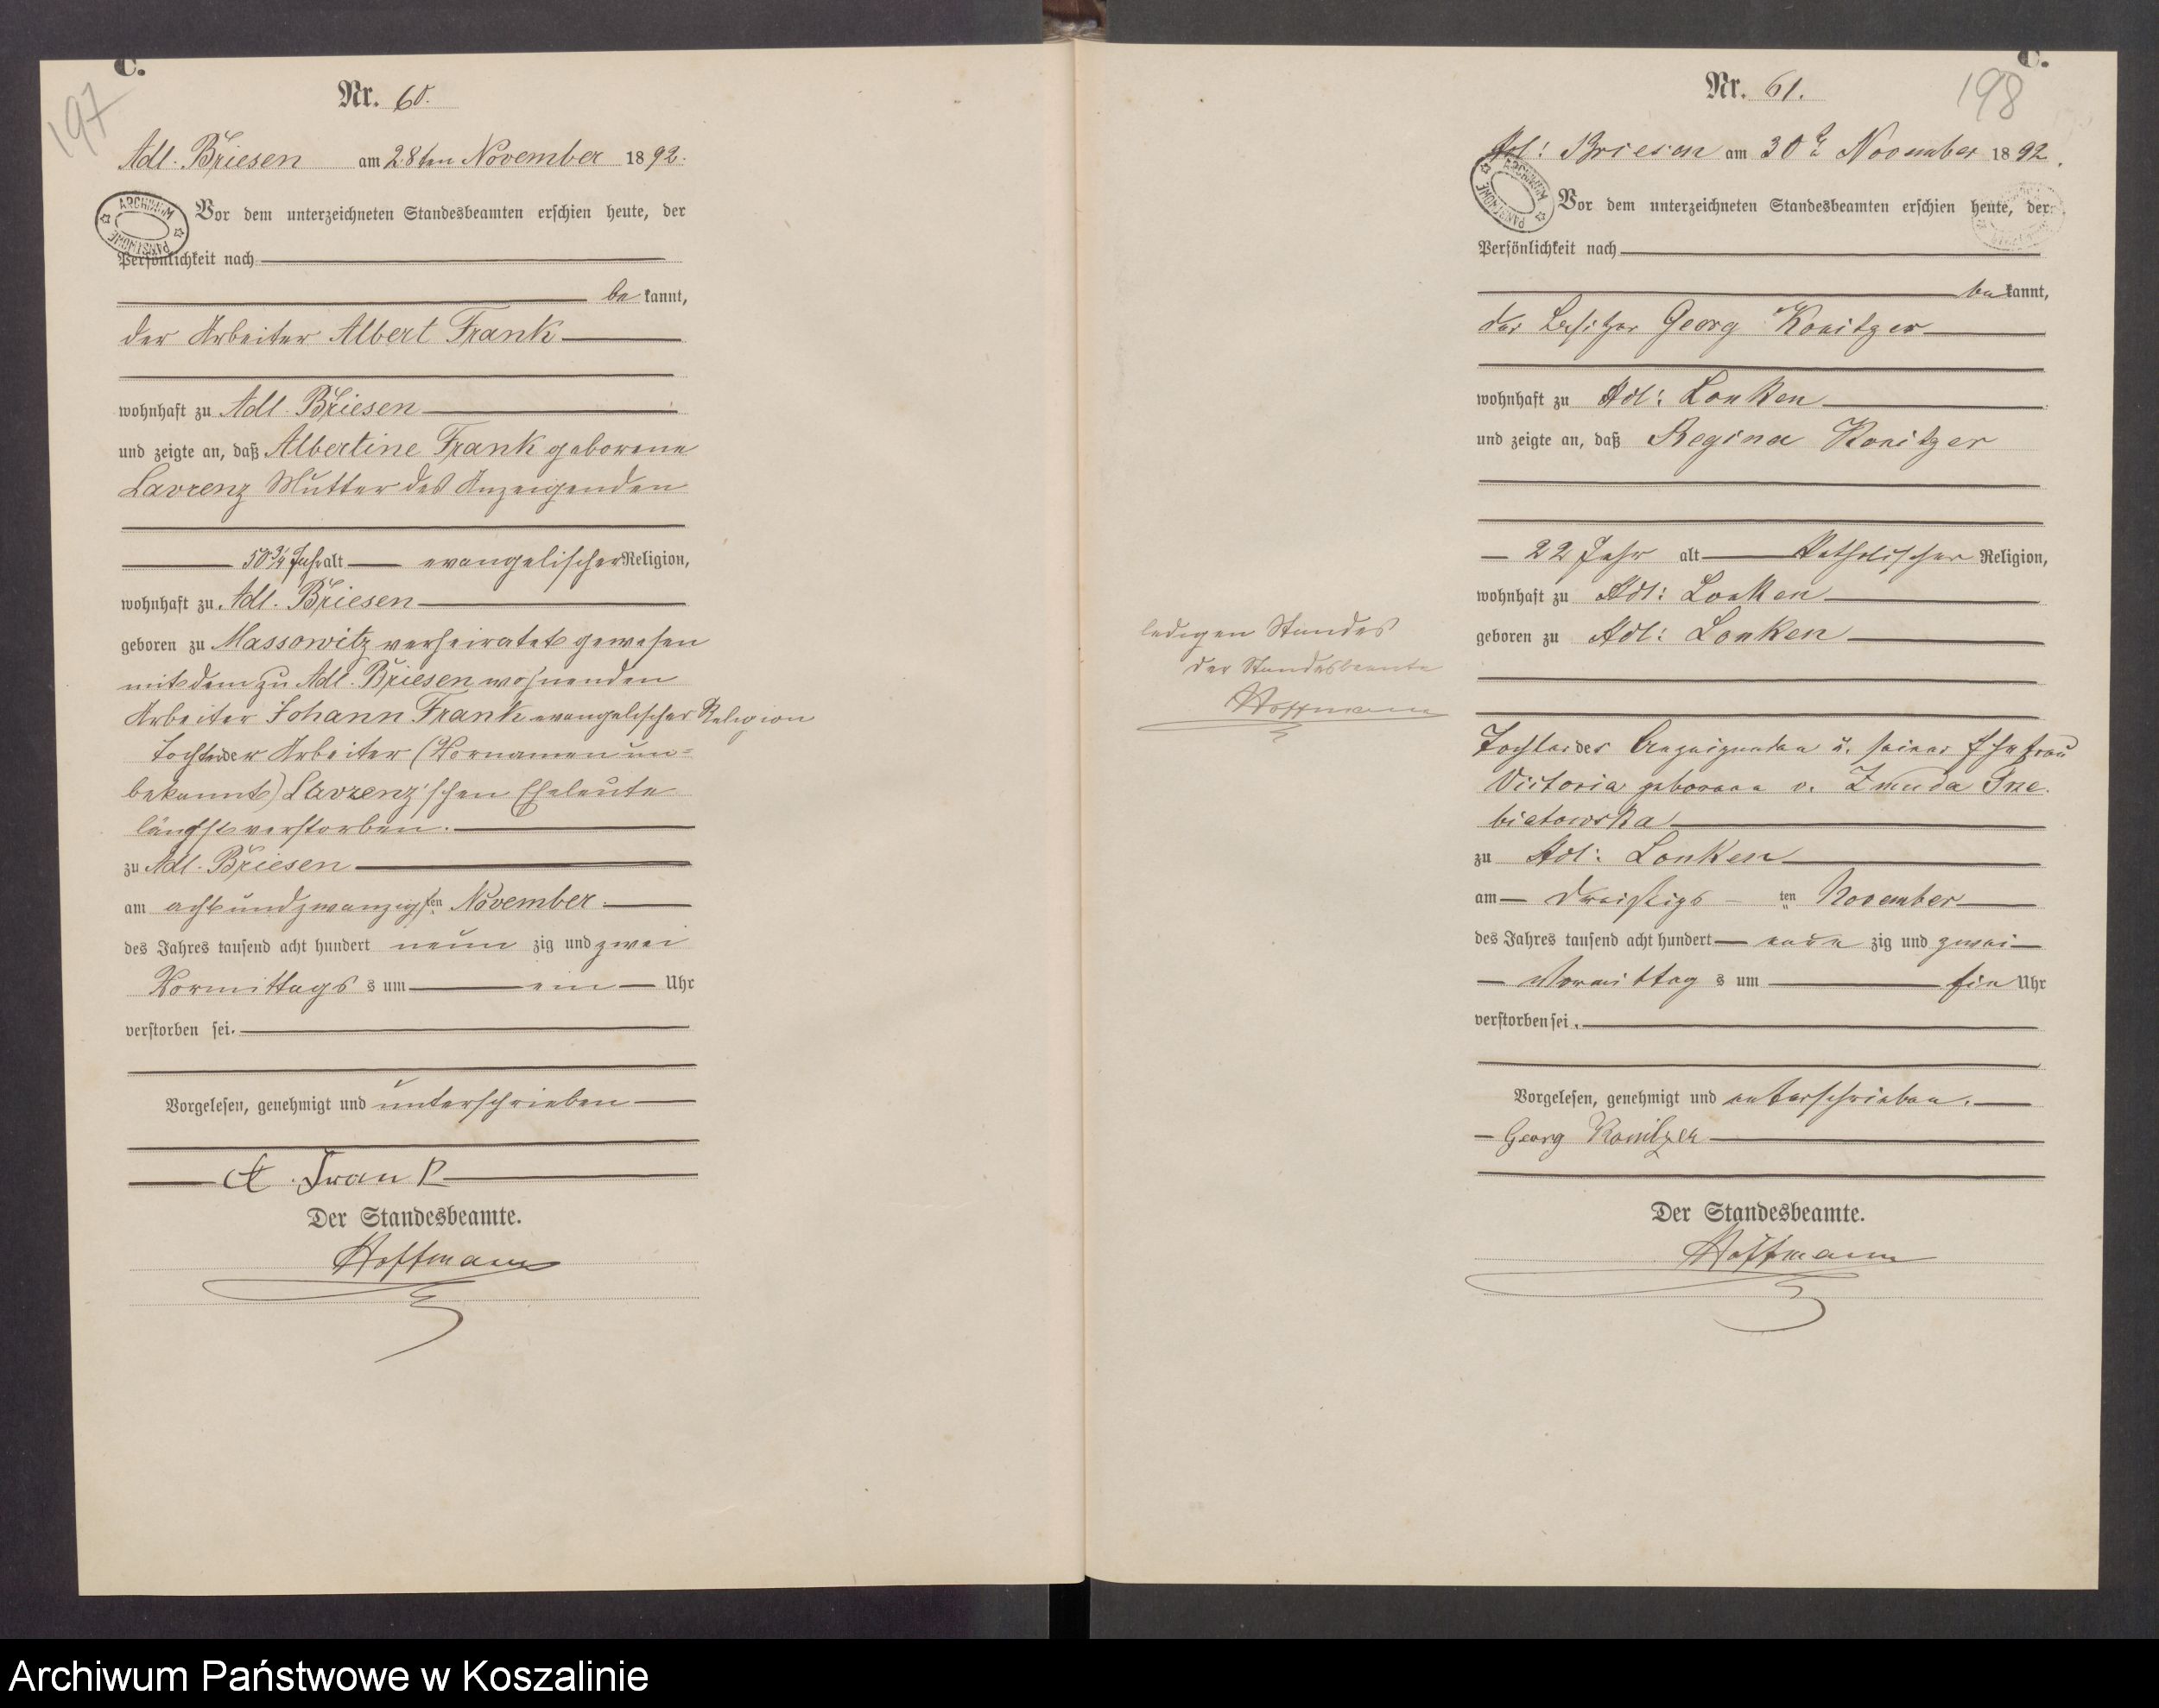 C.
197
Nr. 60.
Adl. Briesen am 28ten November 1892.
ARCHIWUM PAŃSTWOWE
Vor dem unterzeichneten Standesbeamten erschien heute, der
Persönlichkeit nach
be kannt,
der Arbeiter Albert Frank
wohnhaft zu Adl. Briesen
und zeigte an, daß Albertine Frank geborene
Lavrenz Mutter des Anzeigenden
50 3/4 Jahr alt evangelischer Religion,
wohnhaft zu Adl. Briesen
geboren zu Massowitz verheiratet gewesen
mit dem zu Adl. Briesen wohnenden
Arbeiter Johann Frank evangelischer Religion
Tochter der Arbeiter (Vornamen un=
bekannt) Lavrenz'schen Eheleute
längst verstorben.
zu Adl. Briesen
am acht und zwanzigsten November
des Jahres tausend acht hundert neun zig und zwei
Vormittags s um ein Uhr
verstorben sei.
Vorgelesen, genehmigt und unterschrieben
A. Frank
Der Standesbeamte.
Hoffmann
C.
198
Nr. 61.
Adl: Briesen am 30t November 1892.
ARCHIWUM PAŃSTWOWE
Vor dem unterzeichneten Standesbeamten erschien heute, der
Persönlichkeit nach
be kannt,
der Besitzer Georg Konitzer
wohnhaft zu Adl: Lonken
und zeigte an, daß Regina Konitzer
22 Jahr alt Katholischer Religion,
wohnhaft zu Adl: Lonken
geboren zu Adl: Lonken
ledigen Standes
der Standesbeamte
Hoffmann
Tochter des Anzeigenden u. seiner Ehefrau
Victoria geborene v. Zmuda Trze
biatowska
zu Adl: Lonken
am dreißigs ten November
des Jahres tausend acht hundert neun zig und zwei
Vormittag s um ein Uhr
verstorben sei.
Vorgelesen, genehmigt und unterschrieben.
Georg Konitzer
Der Standesbeamte.
Hoffmann
Archiwum Państwowe w Koszalinie